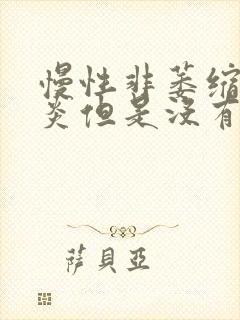 慢性非萎缩
炎但是没有
萨貝亞